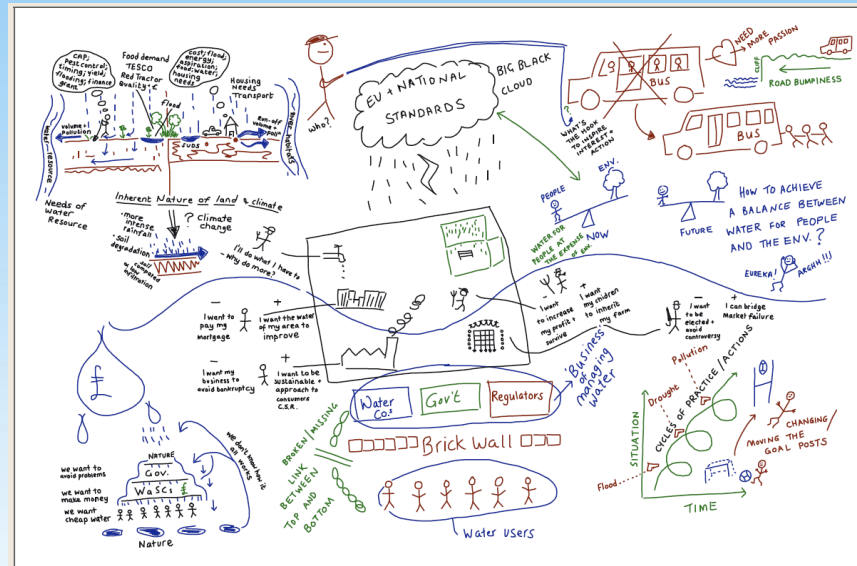 CAP;
Pest control;
timing; yield;
flooding; finance
grant
Food demand
TESCO
Red Tractor
Quality; €
flood
cost; flood;
energy;
aspiration;
food; water;
housing
needs
Housing
Needs
Transport
volume +
pollution
Run-off
volume +
water resource
river habitats
SUDS
Needs of
Water
Resource
Inherent Nature of land & climate
• more
intense
rainfall
• soil
degradation
• soil
compacted
or low
infiltration
? Climate
change
I'll do what I have to
- Why do more?
who?
EU + NATIONAL
STANDARDS
BIG BLACK
CLOUD
?
WHAT'S
THE HOOK
TO INSPIRE
INTEREST +
ACTION?
BUS
NEED
MORE
PASSION
CLIFF
ROAD BUMPINESS
BUS
PEOPLE
ENV.
NOW
WATER FOR
PEOPLE AT
THE EXPENSE
OF ENV.
FUTURE
HOW TO ACHIEVE
A BALANCE BETWEEN
WATER FOR PEOPLE
AND THE ENV.?
EUREKA!
ARGHH!!!
-
I want to
pay my
mortgage
+
I want the water
of my area to
improve
-
I want my
business to
avoid bankruptcy
+
I want to be
sustainable +
approach to
consumers
C.S.R.
-
I want
to increase
my profit +
survive
+
I want
my children
to inherit
my farm
-
I want
to be
elected +
avoid
controversy
+
I can bridge
Market failure
£
Water
Co.s
Gov't
Regulators
Business
of
managing
water
Brick Wall
BROKEN/MISSING
LINK
BETWEEN
TOP AND
BOTTOM
Water users
we don't know how it
all works
we want to
avoid problems
we want to
make money
we want
cheap water
NATURE
Gov.
WaSCs
£
Nature
SITUATION
TIME
Flood
Drought
Pollution
CYCLES OF PRACTICE/ACTIONS
CHANGING/
MOVING THE
GOAL POSTS